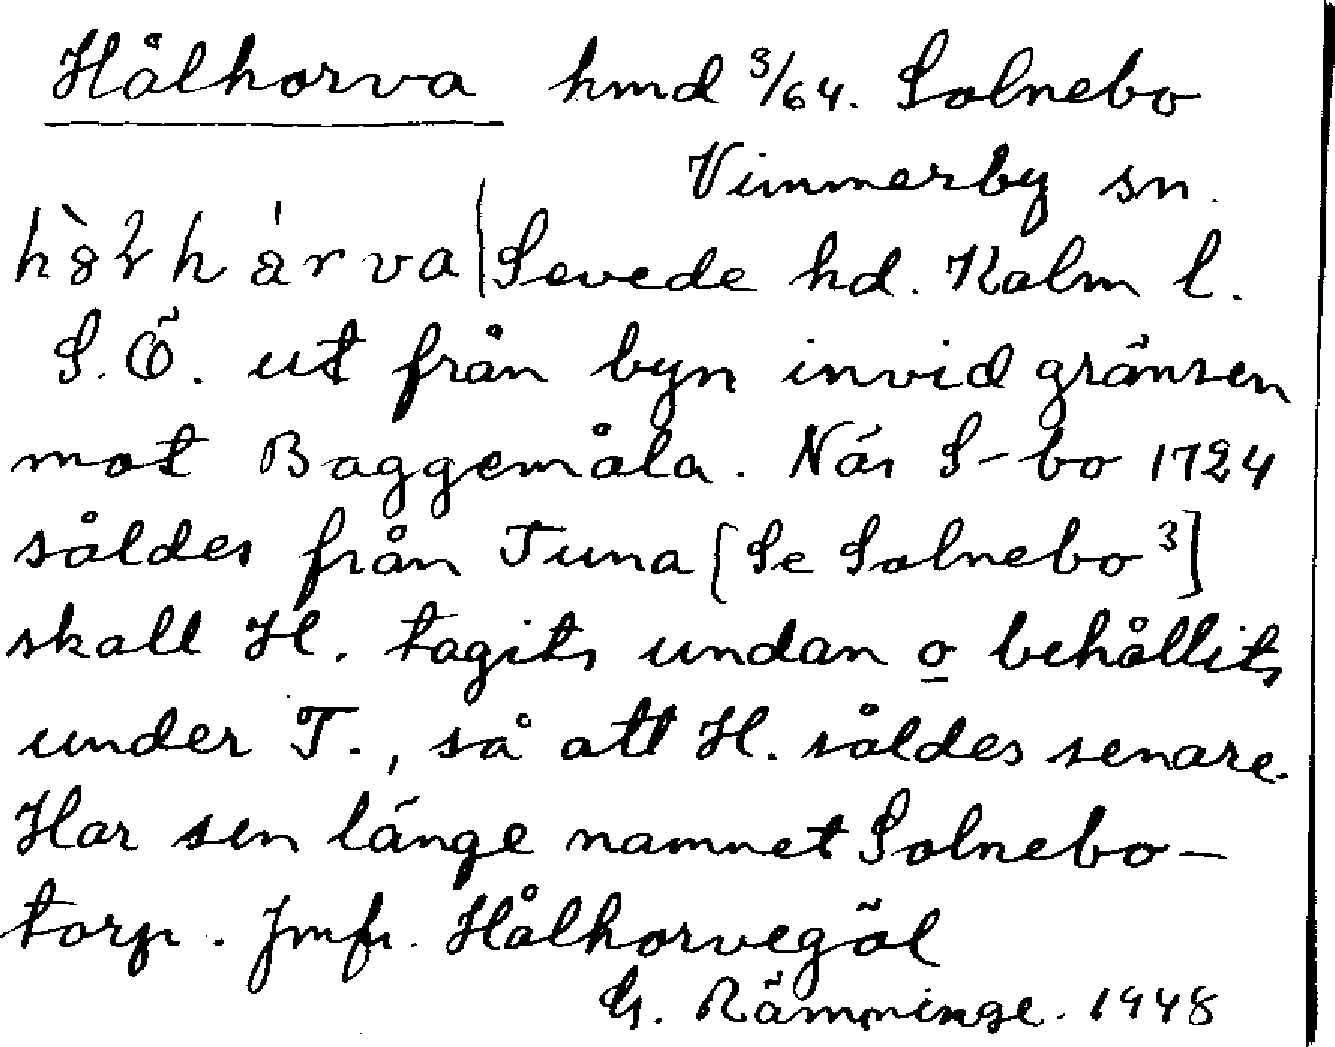 Hålhorva hmd 3/64. Solnebo
Vimmerby sn.
Sevede hd. Kalm l.
S.Ö. ut från byn invid gränsen
mot Baggemåla. När S-bo 1724
såldes från Tuna [Se Solnebo 3]
skall H. tagits undan o behållits
under T., så att H. såldes senare.
Har sen länge namnet Solnebo-
torp. Jmfr. Hålhorvegöl
G. Rämminge. 1948